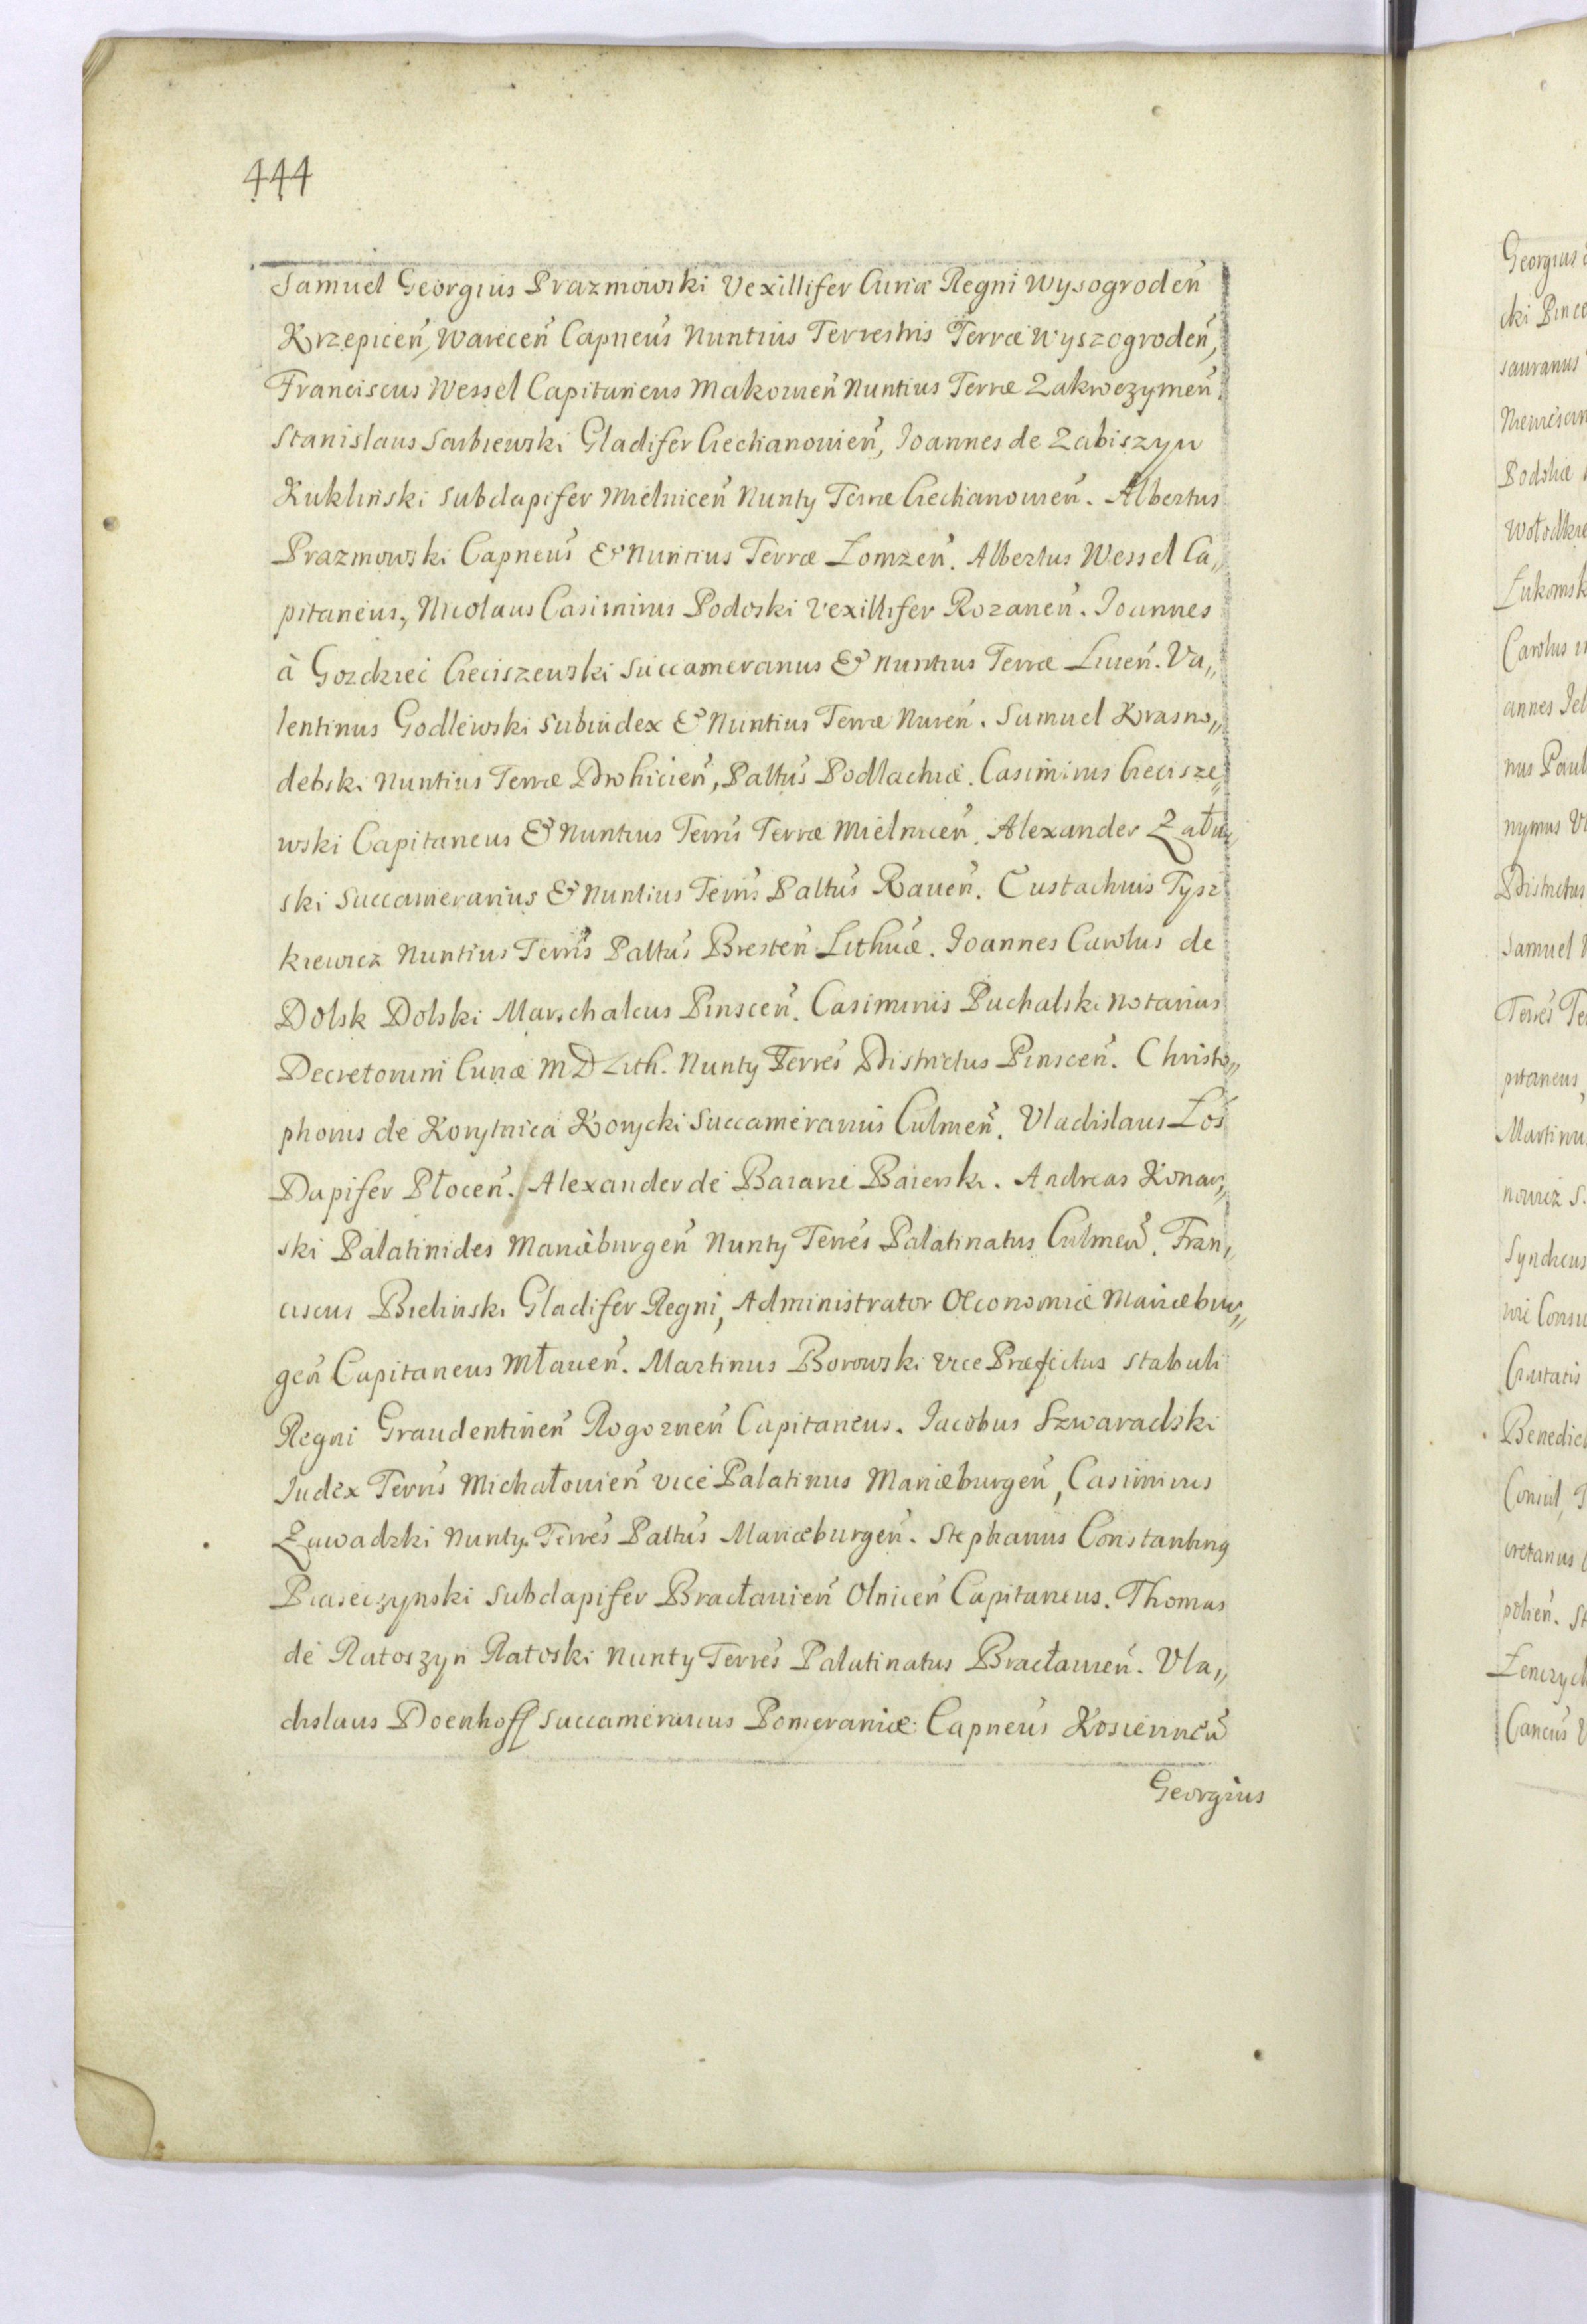 444
Samuel Georgius Prazmowski Vexillifer Curiæ Regni Wysogroden̄
Krzepicen̄, Warecen̄ Capneus Nuntius Terrestris Terræ Wyszogroden̄,
Franciscus Wessel Capitaneus Makovien̄ Nuntius Terræ Zakroczymen̄.
Stanislaus Sarbiewski Gladifer Ciechanovien̄, Joannes de Zabiszyn
Kuklinski Subdapifer Mielnicen̄ Nunty Terræ Ciechanovien̄. Albertus
Prazmowski Capneus & Nuntius Terræ Łomzen̄. Albertus Wessel Ca„
pitaneus, Nicolaus Casimirus Podoski Vexillifer Rozanen̄. Joannes
à Gozdziec Cieciszewski Succameranus & Nuntius Terræ Liven̄. Va„
lentinus Godlewski Subiudex & Nuntius Terræ Nuren̄. Samuel Krasno„
debski Nuntius Terræ Drohicien̄, Paltus Podlachiæ. Casimirus Ciecisze„
wski Capitaneus & Nuntius Terris Terræ Mielnicen̄. Alexander Zału„
ski Succamerarius & Nuntius Terris Paltus Raven̄. Eustachius Tysz„
kiewicz Nuntius Terris Paltus Bresten̄ Lithuæ. Joannes Carolus de
Dolsk Dolski Marschalcus Pinscen̄. Casimirus Puchalski Notarius
Decretorum Curiæ M D Lith. Nunty Terres Districtus Pinscen̄. Christo„
phorus de Korytnica Korycki Succameranus Culmen̄. Vladislaus Łos
Dapifer Płocen̄. Alexander de Baiarze Baierski. Andreas Konar„
ski Palatinides Mariæburgen̄ Nunty Terres Palatinatus Culmen̄. Fran„
ciscus Bielinski Gladifer Regni, Administrator Oeconomiæ Mariæbur„
gen̄ Capitaneus Młaven̄. Martinus Borowski vice Præfectus stabuli
Regni Graudentinen̄ Rogoznen̄ Capitaneus. Jacobus Szwaradzki
Judex Terris Michałovien̄ vice Palatinus Mariæburgen̄, Casimirus
Zawadzki Nunty Terres Paltus Mariæburgen̄. Stephanus Constantinq
Piaseczynski Subdapifer Bracłavien̄ Olnicen̄ Capitaneus. Thomas
de Ratoszyn Ratoski Nunty Terres Palatinatus Bracłavien̄. Vla„
dislaus Doenhoff Succamerarius Pomeraniæ Capneus Kosciernen̄
Georgius